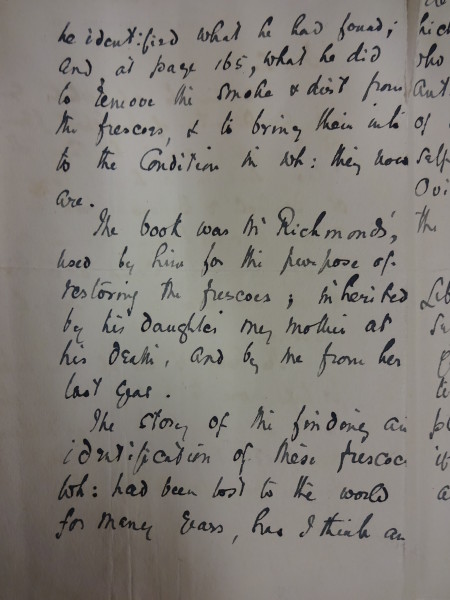 he identified what he had found;
and, at page 165, what he did
to remove the smoke & dirt from
the frescoes, & to bring them into
to the Condition in wh: they now
are.
The book was Mr Richmonds',
used by him for the purpose of
restoring the frescoes; inherited
by his daughter my mother at
his death, and by me from her
last year.
The story of the finding an
identification of these frescoe
wh: had been lost to the world
for many years, has I think an
hich
who
Aut
of
self
Ovi
the
Lib
Se